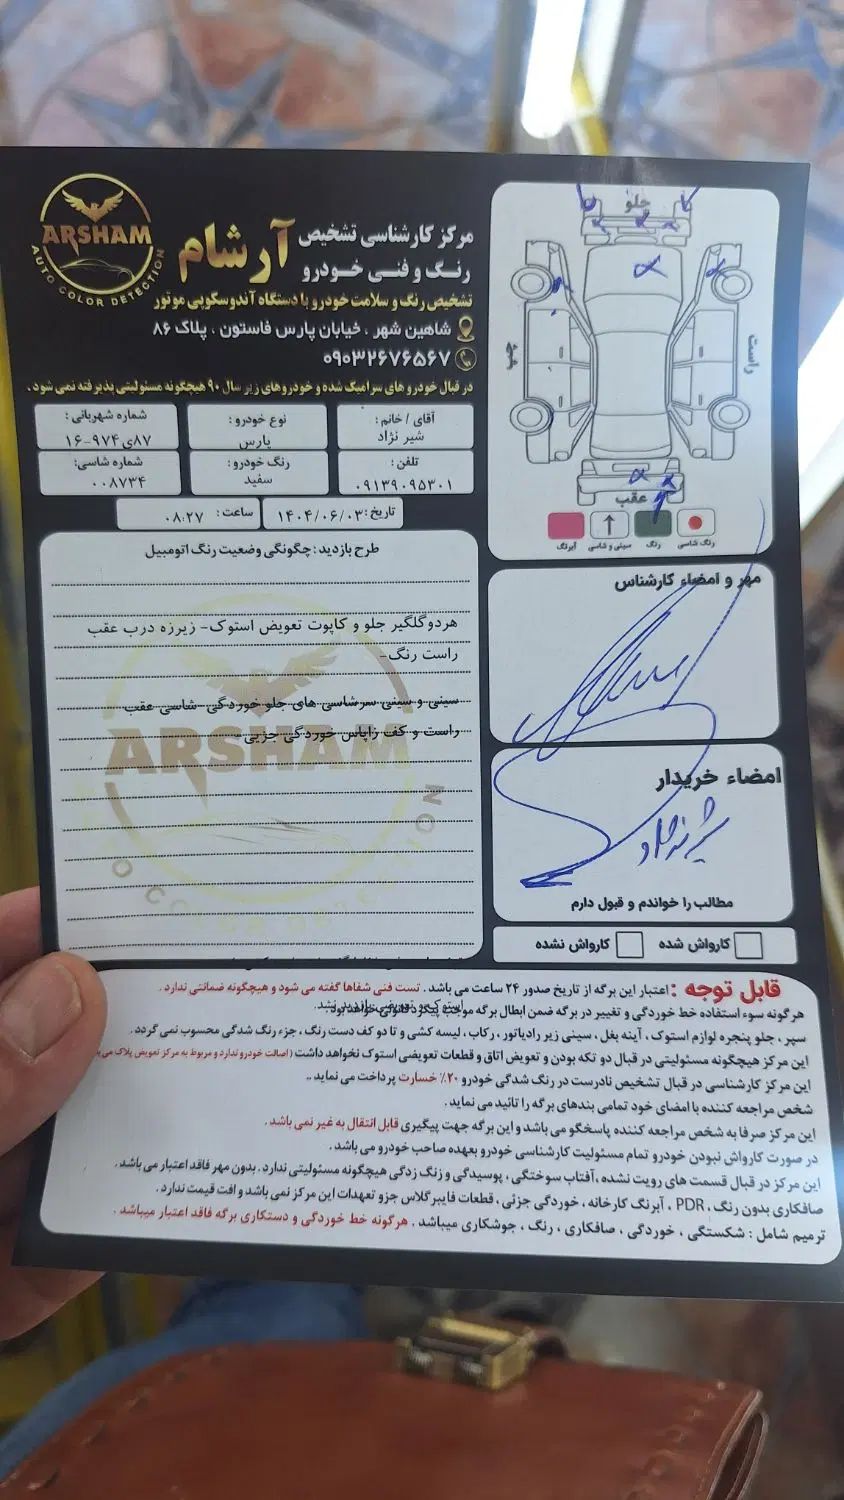 ARSHAM
AUTO COLOR DETECTION
مرکز کارشناسی تشخیص
رنگ و فنی خودرو
آرشام
تشخیص رنگ و سلامت خودرو با دستگاه آندوسکوپی موتور
شاهین شهر ، خیابان پارس فاستون ، پلاک ۸۶
۰۹۰۳۲۶۷۶۵۶۷
در قبال خودرو های سرامیک شده و خودروهای زیر سال ۹۰ هیچگونه مسئولیتی پذیرفته نمی شود .
آقای / خانم :
شیر نژاد
نوع خودرو :
پارس
شماره شهربانی :
۸۷ی۹۷۴-۱۶
تلفن :
۰۹۱۳۹۰۹۵۳۰۱
رنگ خودرو :
سفید
شماره شاسی:
۰۰۸۷۳۴
تاریخ: ۱۴۰۴/۰۶/۰۳
ساعت : ۰۸:۲۷
طرح بازدید : چگونگی وضعیت رنگ اتومبیل
هردوگلگیر جلو و کاپوت تعویض استوک- زیرزه درب عقب
راست رنگ-
سینی و سینی سرشاسی های جلو خوردگی -شاسی عقب
راست و کف زاپاس خوردگی جزیی -
ARSHAM
جلو
راست
چپ
عقب
رنگ شاسی
رنگ
سینی و شاسی
آبرنگ
مهر و امضاء کارشناس
امضاء خریدار
شیرنژاد
مطالب را خواندم و قبول دارم
کارواش شده
کارواش نشده
قابل توجه : اعتبار این برگه از تاریخ صدور ۲۴ ساعت می باشد . تست فنی شفاها گفته می شود و هیچگونه ضمانتی ندارد .
هرگونه سوء استفاده خط خوردگی و تغییر در برگه ضمن ابطال برگه موجب پیگرد قانونی خواهد بود
سپر ، جلو پنجره لوازم استوک ، آینه بغل ، سینی زیر رادیاتور ، رکاب ، لیسه کشی و تا دو کف دست رنگ ، جزء رنگ شدگی محسوب نمی گردد .
این مرکز هیچگونه مسئولیتی در قبال دو تکه بودن و تعویض اتاق و قطعات تعویضی استوک نخواهد داشت (اصالت خودرو ندارد و مربوط به مرکز تعویض پلاک
این مرکز کارشناسی در قبال تشخیص نادرست در رنگ شدگی خودرو ۲۰٪ خسارت پرداخت می نماید ..
شخص مراجعه کننده با امضای خود تمامی بندهای برگه را تائید می نماید .
این مرکز صرفا به شخص مراجعه کننده پاسخگو می باشد و این برگه جهت پیگیری قابل انتقال به غیر نمی باشد .
در صورت کارواش نبودن خودرو تمام مسئولیت کارشناسی خودرو بعهده صاحب خودرو می باشد .
این مرکز در قبال قسمت های رویت نشده ، آفتاب سوختگی ، پوسیدگی و زنگ زدگی هیچگونه مسئولیتی ندارد . بدون مهر فاقد اعتبار می باشد .
صافکاری بدون رنگ ، PDR ، آبرنگ کارخانه ، خوردگی جزئی ، قطعات فایبرگلاس جزو تعهدات این مرکز نمی باشد و افت قیمت ندارد .
ترمیم شامل : شکستگی ، خوردگی ، صافکاری ، رنگ ، جوشکاری میباشد . هرگونه خط خوردگی و دستکاری برگه فاقد اعتبار میباشد .